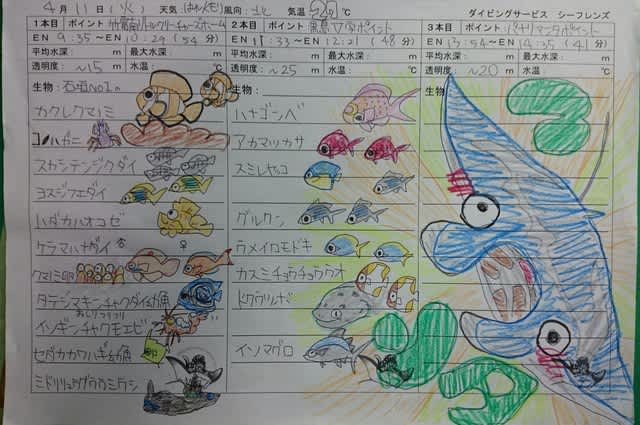 4月11日(火) 天気 はれ(くもり) 風向 北 気温 29℃ ダイビングサービス シーフレンズ
1本目 ポイント
EN 9:35～EN 10:29 (54分)
平均水深: m 最大水深: m
透明度: ～15m 水温: ℃
生物: 石垣No1の
カクレクマノミ
コノハガニ
スカシテンジクダイ
ヨスジフエダイ
ハダカハオコゼ
ケラマハナダイ ♂ ♀
クマノミ卵
タテジマキンチャクダイ幼魚
おしりフリフリ
イソギンチャクモエビ
セダカカワハギ幼魚
ミドリリュウグウウミウシ
2本目 ポイント 黒島マンタポイント
EN 11:33～EN 12:21 (48分)
平均水深: m 最大水深: m
透明度: ～25m 水温: ℃
生物:
ハナゴンベ
アカマツカサ
スミレヤッコ
グルクン
ウメイロモドキ
カスミチョウチョウウオ
ドクウツボ
イソマグロ
3本目 ポイント パナリマンタポイント
EN 13:54～EN 14:35 (41分)
平均水深: m 最大水深: m
透明度: ～20m 水温: ℃
生物
マンタ